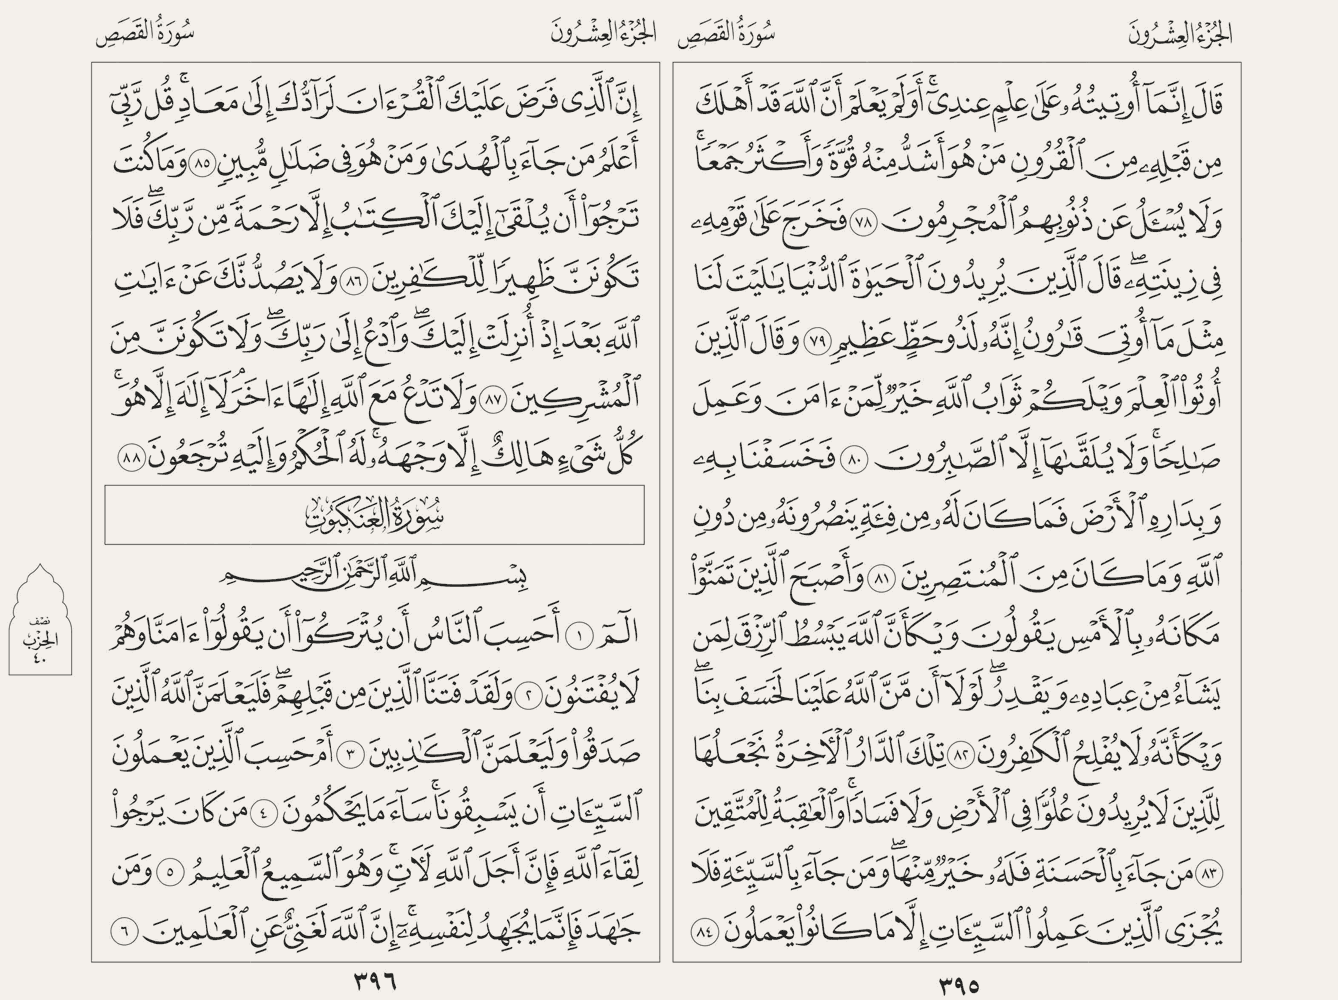 الجُزْءُ العِشْرُونَ
سُورَةُ القَصَصِ
قَالَ إِنَّمَآ أُوتِيتُهُۥ عَلَىٰ عِلْمٍ عِندِيٓۚ أَوَلَمْ يَعْلَمْ أَنَّ ٱللَّهَ قَدْ أَهْلَكَ
مِن قَبْلِهِۦ مِنَ ٱلْقُرُونِ مَنْ هُوَ أَشَدُّ مِنْهُ قُوَّةً وَأَكْثَرُ جَمْعًاۚ
وَلَا يُسْـَٔلُ عَن ذُنُوبِهِمُ ٱلْمُجْرِمُونَ ٧٨ فَخَرَجَ عَلَىٰ قَوْمِهِۦ
فِي زِينَتِهِۦۖ قَالَ ٱلَّذِينَ يُرِيدُونَ ٱلْحَيَوٰةَ ٱلدُّنْيَا يَٰلَيْتَ لَنَا
مِثْلَ مَآ أُوتِيَ قَٰرُونُ إِنَّهُۥ لَذُو حَظٍّ عَظِيمٍ ٧٩ وَقَالَ ٱلَّذِينَ
أُوتُوا۟ ٱلْعِلْمَ وَيْلَكُمْ ثَوَابُ ٱللَّهِ خَيْرٌ لِّمَنْ ءَامَنَ وَعَمِلَ
صَٰلِحًاۚ وَلَا يُلَقَّىٰهَآ إِلَّا ٱلصَّٰبِرُونَ ٨٠ فَخَسَفْنَا بِهِۦ
وَبِدَارِهِ ٱلْأَرْضَ فَمَا كَانَ لَهُۥ مِن فِئَةٍ يَنصُرُونَهُۥ مِن دُونِ
ٱللَّهِ وَمَا كَانَ مِنَ ٱلْمُنتَصِرِينَ ٨١ وَأَصْبَحَ ٱلَّذِينَ تَمَنَّوْا۟
مَكَانَهُۥ بِٱلْأَمْسِ يَقُولُونَ وَيْكَأَنَّ ٱللَّهَ يَبْسُطُ ٱلرِّزْقَ لِمَن
يَشَآءُ مِنْ عِبَادِهِۦ وَيَقْدِرُۖ لَوْلَآ أَن مَّنَّ ٱللَّهُ عَلَيْنَا لَخَسَفَ بِنَاۖ
وَيْكَأَنَّهُۥ لَا يُفْلِحُ ٱلْكَٰفِرُونَ ٨٢ تِلْكَ ٱلدَّارُ ٱلْءَاخِرَةُ نَجْعَلُهَا
لِلَّذِينَ لَا يُرِيدُونَ عُلُوًّا فِي ٱلْأَرْضِ وَلَا فَسَادًاۚ وَٱلْعَٰقِبَةُ لِلْمُتَّقِينَ
٨٣ مَن جَآءَ بِٱلْحَسَنَةِ فَلَهُۥ خَيْرٌ مِّنْهَاۖ وَمَن جَآءَ بِٱلسَّيِّئَةِ فَلَا
يُجْزَى ٱلَّذِينَ عَمِلُوا۟ ٱلسَّيِّـَٔاتِ إِلَّا مَا كَانُوا۟ يَعْمَلُونَ ٨٤
٣٩٥
الجُزْءُ العِشْرُونَ
سُورَةُ القَصَصِ
إِنَّ ٱلَّذِي فَرَضَ عَلَيْكَ ٱلْقُرْءَانَ لَرَآدُّكَ إِلَىٰ مَعَادٍۚ قُل رَّبِّيٓ
أَعْلَمُ مَن جَآءَ بِٱلْهُدَىٰ وَمَنْ هُوَ فِي ضَلَٰلٍ مُّبِينٍ ٨٥ وَمَا كُنتَ
تَرْجُوٓا۟ أَن يُلْقَىٰٓ إِلَيْكَ ٱلْكِتَٰبُ إِلَّا رَحْمَةً مِّن رَّبِّكَۖ فَلَا
تَكُونَنَّ ظَهِيرًا لِّلْكَٰفِرِينَ ٨٦ وَلَا يَصُدُّنَّكَ عَنْ ءَايَٰتِ
ٱللَّهِ بَعْدَ إِذْ أُنزِلَتْ إِلَيْكَۖ وَٱدْعُ إِلَىٰ رَبِّكَۖ وَلَا تَكُونَنَّ مِنَ
ٱلْمُشْرِكِينَ ٨٧ وَلَا تَدْعُ مَعَ ٱللَّهِ إِلَٰهًا ءَاخَرَۘ لَآ إِلَٰهَ إِلَّا هُوَۚ
كُلُّ شَيْءٍ هَالِكٌ إِلَّا وَجْهَهُۥۚ لَهُ ٱلْحُكْمُ وَإِلَيْهِ تُرْجَعُونَ ٨٨
سُورَةُ العَنكَبُوتِ
بِسْمِ ٱللَّهِ ٱلرَّحْمَٰنِ ٱلرَّحِيمِ
الٓمٓ ١ أَحَسِبَ ٱلنَّاسُ أَن يُتْرَكُوٓا۟ أَن يَقُولُوٓا۟ ءَامَنَّا وَهُمْ
لَا يُفْتَنُونَ ٢ وَلَقَدْ فَتَنَّا ٱلَّذِينَ مِن قَبْلِهِمْۖ فَلَيَعْلَمَنَّ ٱللَّهُ ٱلَّذِينَ
صَدَقُوا۟ وَلَيَعْلَمَنَّ ٱلْكَٰذِبِينَ ٣ أَمْ حَسِبَ ٱلَّذِينَ يَعْمَلُونَ
ٱلسَّيِّـَٔاتِ أَن يَسْبِقُونَاۚ سَآءَ مَا يَحْكُمُونَ ٤ مَن كَانَ يَرْجُوا۟
لِقَآءَ ٱللَّهِ فَإِنَّ أَجَلَ ٱللَّهِ لَءَاتٍۚ وَهُوَ ٱلسَّمِيعُ ٱلْعَلِيمُ ٥ وَمَن
جَٰهَدَ فَإِنَّمَا يُجَٰهِدُ لِنَفْسِهِۦٓۚ إِنَّ ٱللَّهَ لَغَنِيٌّ عَنِ ٱلْعَٰلَمِينَ ٦
٣٩٦
نِصْف
الحِزْبِ
٤٠